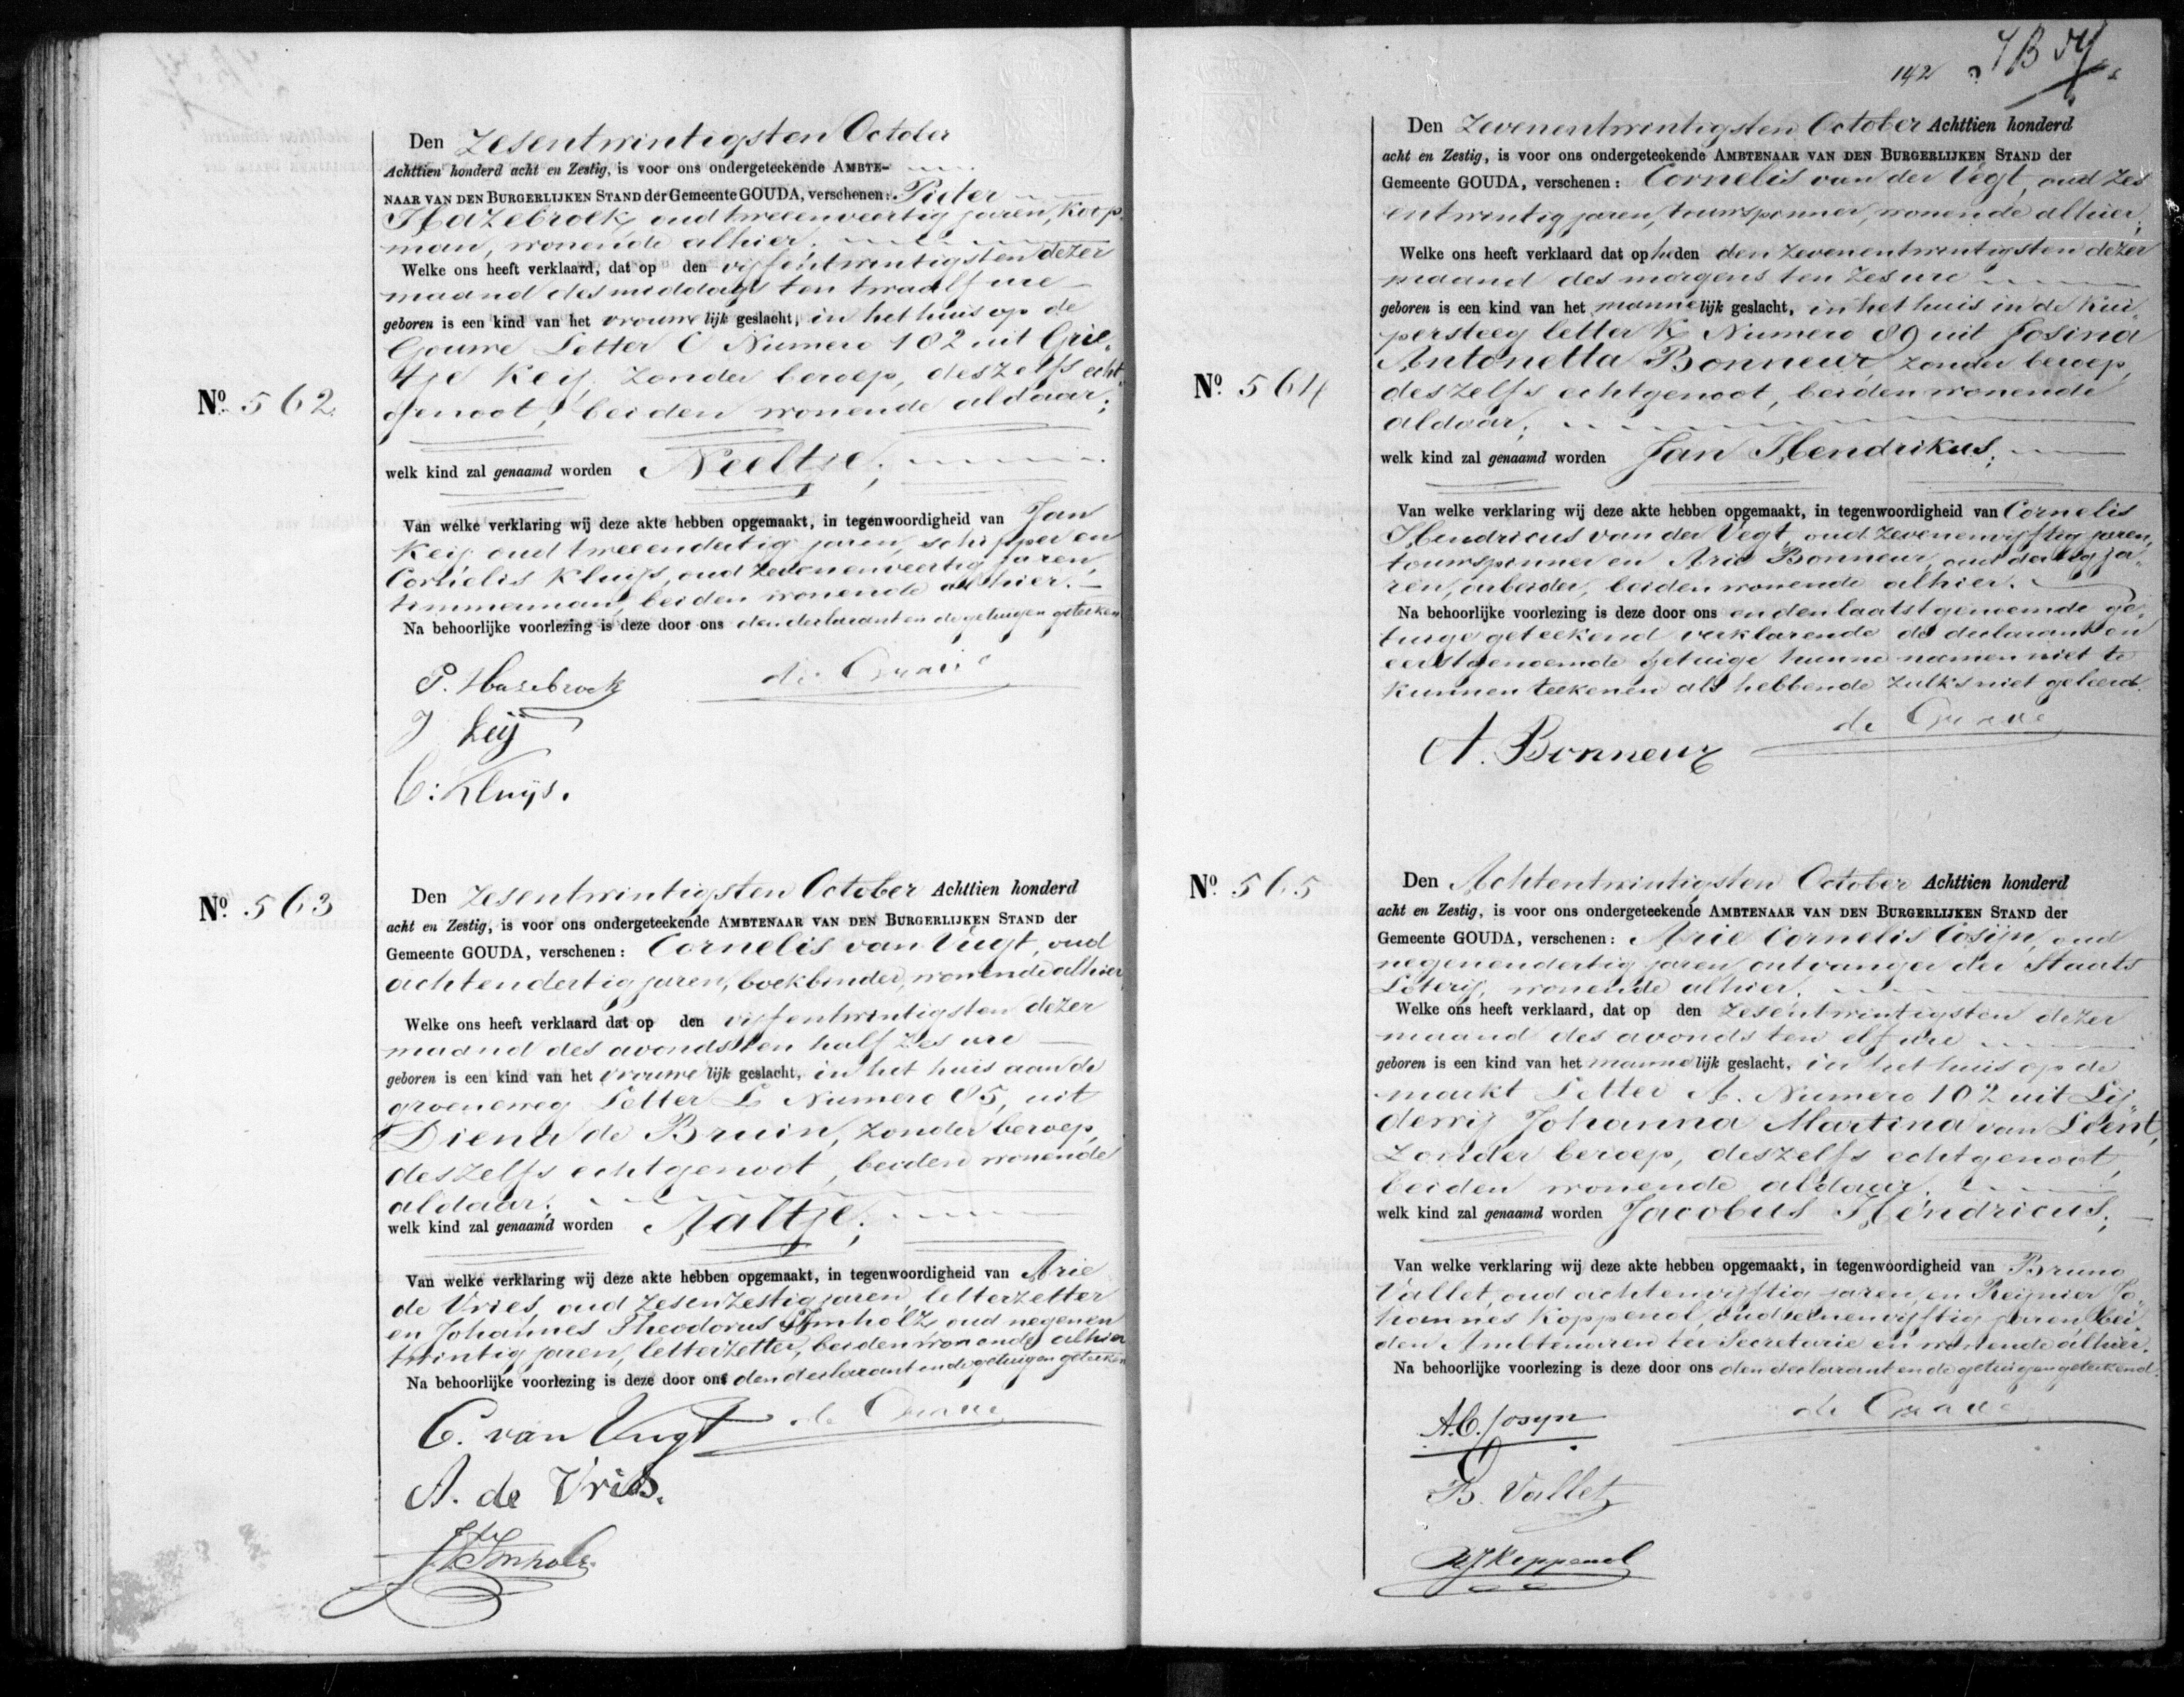 Nº 562.
Den Zesentwintigsten October
Achttien honderd acht en Zestig, is voor ons ondergeteekende AMBTE-
NAAR VAN DEN BURGERLIJKEN STAND der Gemeente GOUDA, verschenen: Pieter
Hazebroek, oud tweeenveertig jaren, koop-
man, wonende alhier.
Welke ons heeft verklaard, dat op den vijfentwintigsten dezer
maand des middags ten twaalf ure
geboren is een kind van het vrouwelijk geslacht, in het huis op de
Gouwe Letter C Numero 102 uit Grie-
tje Keij, zonder beroep, deszelfs echt-
genoot, beiden wonende aldaar;
welk kind zal genaamd worden Neeltje;
Van welke verklaring wij deze akte hebben opgemaakt, in tegenwoordigheid van Jan
Keij, oud tweeendertig jaren, schipper en
Cornelis Kluijs, oud zevenenveertig jaren,
timmerman, beiden wonende alhier.
Na behoorlijke voorlezing is deze door ons den declarant en de getuigen geteeken
P. Hazebroek de Grave
J Keij
C: Kluijs.
Nº 563
Den Zesentwintigsten October Achttien honderd
acht en Zestig, is voor ons ondergeteekende AMBTENAAR VAN DEN BURGERLIJKEN STAND der
Gemeente GOUDA, verschenen: Cornelis van Vugt, oud
achtendertig jaren, boekbinder, wonende alhier
Welke ons heeft verklaard dat op den vijfentwintigsten dezer
maand des avonds ten half zes ure
geboren is een kind van het vrouwelijk geslacht, in het huis aan de
groeneweg Letter L Numero 85, uit
Diena de Bruin, zonder beroep,
deszelfs echtgenoot, beiden wonende
aldaar;
welk kind zal genaamd worden Aaltje;
Van welke verklaring wij deze akte hebben opgemaakt, in tegenwoordigheid van Arie
de Vries, oud zesenzestig jaren, letterzetter
en Johannes Theodorus Imholz, oud negenen
twintig jaren, letterzetter, beiden wonende alhier
Na behoorlijke voorlezing is deze door ons den declarant en de getuigen geteeken
C. van Vugt de Grave
A. de Vries.
J T Imholz
142
Nº 564
Den Zevenentwintigsten October Achttien honderd
acht en Zestig, is voor ons ondergeteekende AMBTENAAR VAN DEN BURGERLIJKEN STAND der
Gemeente GOUDA, verschenen: Cornelis van der Vegt, oud zes
entwintig jaren, touwspinner, wonende alhier,
Welke ons heeft verklaard dat op heden den zevenentwintigsten dezer
maand des morgens ten zes ure
geboren is een kind van het mannelijk geslacht, in het huis in de Kui-
persteeg letter K Numero 89 uit Josina
Antonetta Bonneur, zonder beroep,
deszelfs echtgenoot, beiden wonende
aldaar;
welk kind zal genaamd worden Jan Hendrikus;
Van welke verklaring wij deze akte hebben opgemaakt, in tegenwoordigheid van Cornelis
Hendricus van der Vegt, oud zevenenvijftig jaren,
touwspinner en Arie Bonneur, oud dertig ja-
ren, arbeider, beiden wonende alhier.
Na behoorlijke voorlezing is deze door ons en den laatstgenoemde ge-
tuige geteekend verklarende de declarant en
eerstgenoemde getuige hunne namen niet te
kunnen teekenen als hebbende zulks niet geleerd.
A. Bonneur de Grave
Nº 565
Den Achtentwintigsten October Achttien honderd
acht en Zestig, is voor ons ondergeteekende AMBTENAAR VAN DEN BURGERLIJKEN STAND der
Gemeente GOUDA, verschenen: Arie Cornelis Cosijn, oud
negenendertig jaren, ontvanger der Staats
Loterij, wonende alhier.
Welke ons heeft verklaard, dat op den zesentwintigsten dezer
maand des avonds ten elf ure
geboren is een kind van het mannelijk geslacht, in het huis op de
markt Letter A. Numero 102 uit Lij-
derrij Johanna Martina van Leent,
zonder beroep, deszelfs echtgenoot,
beiden wonende aldaar.
welk kind zal genaamd worden Jacobus Hendricus;
Van welke verklaring wij deze akte hebben opgemaakt, in tegenwoordigheid van Bruno
Vallet, oud achtenvijftig jaren, en Reijnier Jo-
hannes Koppenol, oud eenenvijftig jaren, bei-
den Ambtenaren ter Secretarie en wonende alhier.
Na behoorlijke voorlezing is deze door ons den declarant en de getuigen geteekend.
A.C. Cosyn de Grave
B. Vallet
R J Koppenol